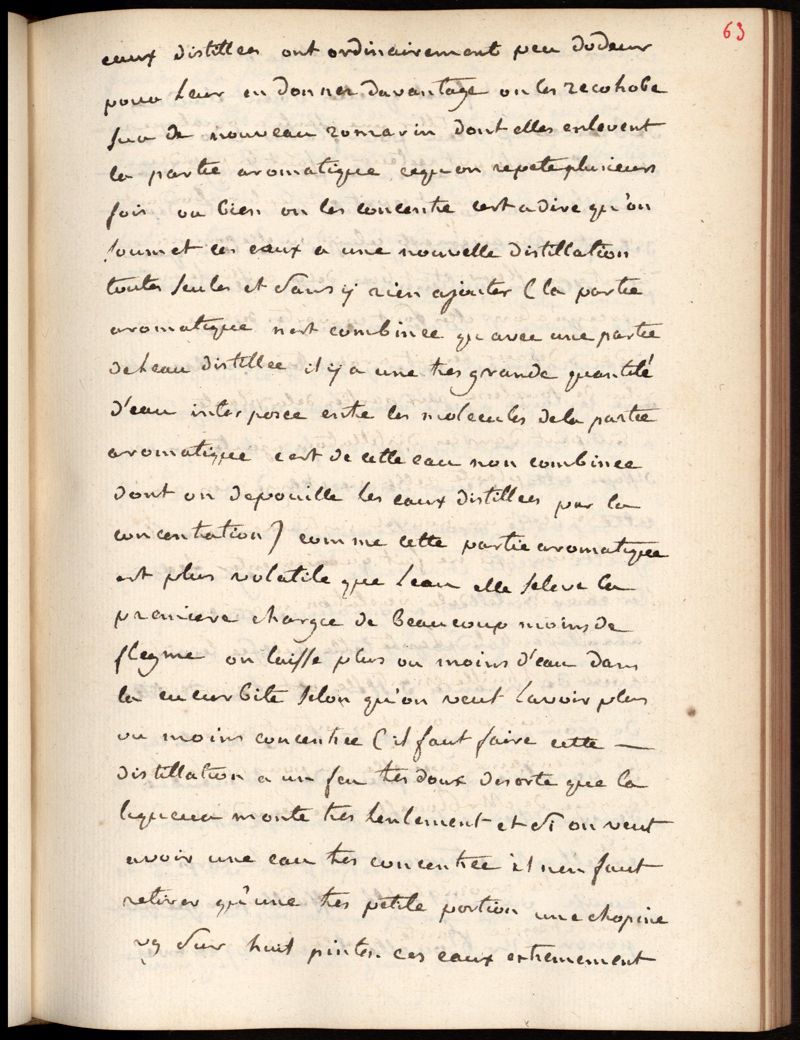 63
eaux distillees ont ordinairement peu dodeur
pour leur en donner davantage on les recohobe
sur de nouveau romarin dont elles enlevent
la partie aromatique cequ on repete plusieurs
fois ou bien on les concentre cest a dire qu'on
soumet ces eaux a une nouvelle distillation
toutes seules et sans y rien ajouter (la partie
aromatique nest combinee qu avec une partie
deleau distillee il y a une tres grande quantité
d'eau interposee entre les molecules dela partie
aromatique cest de cette eau non combinee
dont on depouille les eaux distillees par la
concentration) comme cette partie aromatique
est plus volatile que leau elle seleve la
premiere chargee de beaucoup moins de
flegme on laisse plus ou moins d'eau dans
la cucurbite selon qu'on veut lavoir plus
ou moins concentree (il faut faire cette —
distillation a un feu tres doux desorte que la
liqueur monte tres lentement et si on veut
avoir une eau tres concentree il nen faut
retirer qu'une tres petite portion une chopine
vg sur huit pintes. ces eaux extremement